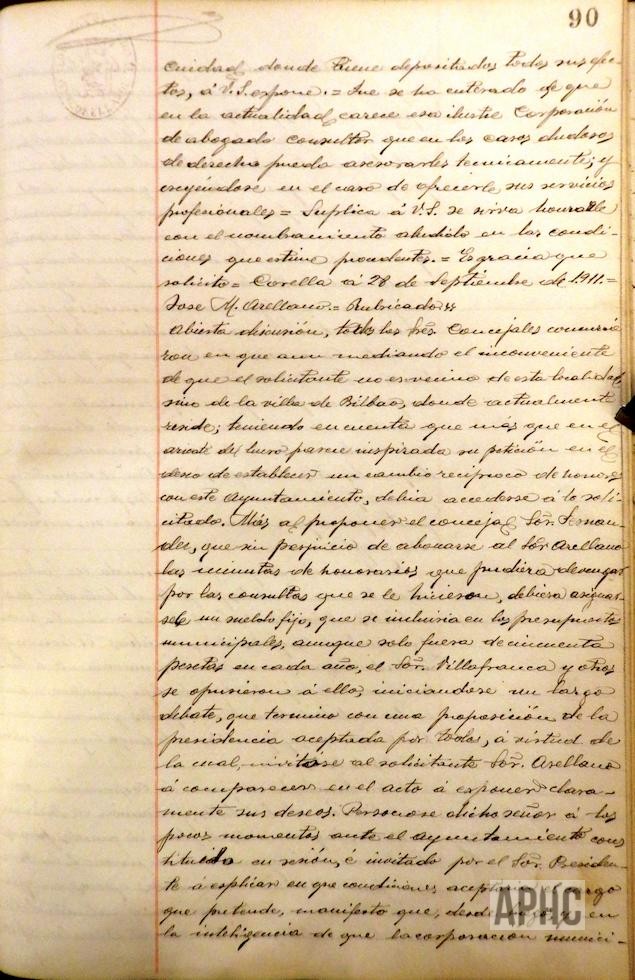 90
cuidad donde tiene depositados todos sus afec-
tos, á V.S. expone: = Que se ha enterado de que
en la actualidad carece esa ilustre Corporación
de abogado consultor que en los casos dudosos
de derecho pueda asesorarles tecnicamente; y
creyendose en el caso de ofrecerle sus servicios
profesionales = Suplica á V.S. se sirva honrarle
con el nombramiento aludido en las condi-
ciones que estime procedentes. = Es gracia que
solicita = Corella á 28 de Septiembre de 1911. =
Jose M. Arellano. = Rubricado
Abierta discusión, todos los Sres. Concejales convinie
ron en que aun mediando el inconveniente
de que el solicitante no es vecino de esta localidad
sino de la villa de Bilbao, donde actualmente
reside; teniendo en cuenta que más que en el
de lucro parece inspirada su petición en el
deseo de establecer un cambio reciproco de honores
con este Ayuntamiento, debia accederse á lo soli-
citado. Más al proponer el concejal Sor. Fernan-
dez, que sin perjuicio de abonarse al Sor Arellano
las minutas de honorarios que pudiera devengar
por las consultas que se le hicieron, debiera asignar-
sele un sueldo fijo, que se incluiria en los presupuestos
municipales, aunque solo fuera de cincuenta
pesetas en cada año, el Sor. Villafranca y otros
se opusieron á ello, iniciandose un largo
debate, que termino con una proposición de la
presidencia aceptada por todos, á virtud de
la cual, invitóse al solicitante Sor. Arellano
á comparecer en el acto á exponer clara-
mente sus deseos. Personose dicho señor á los
pocos momentos ante el Ayuntamiento cons
tituido en sesión, é invitado por el Sor. Presiden-
te á esplicar en que condiciones aceptaria el cargo
que pretende, manifesto que, desde luego y en
la inteligencia de que la corporacion munici-
APHC